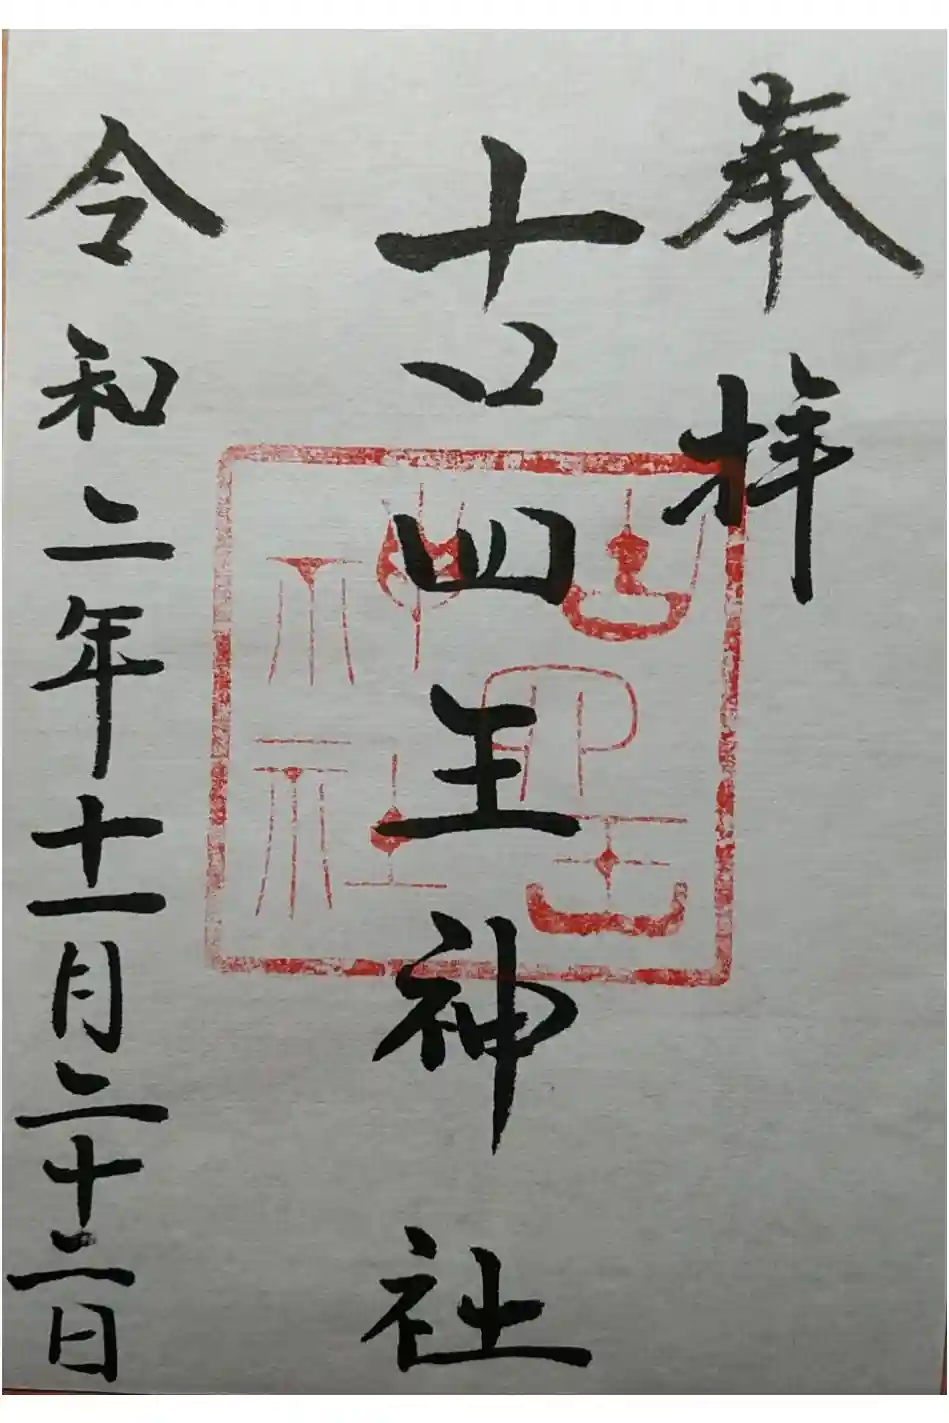 奉拝
古四王神社
古四王
神社
令和二年十一月二十二日